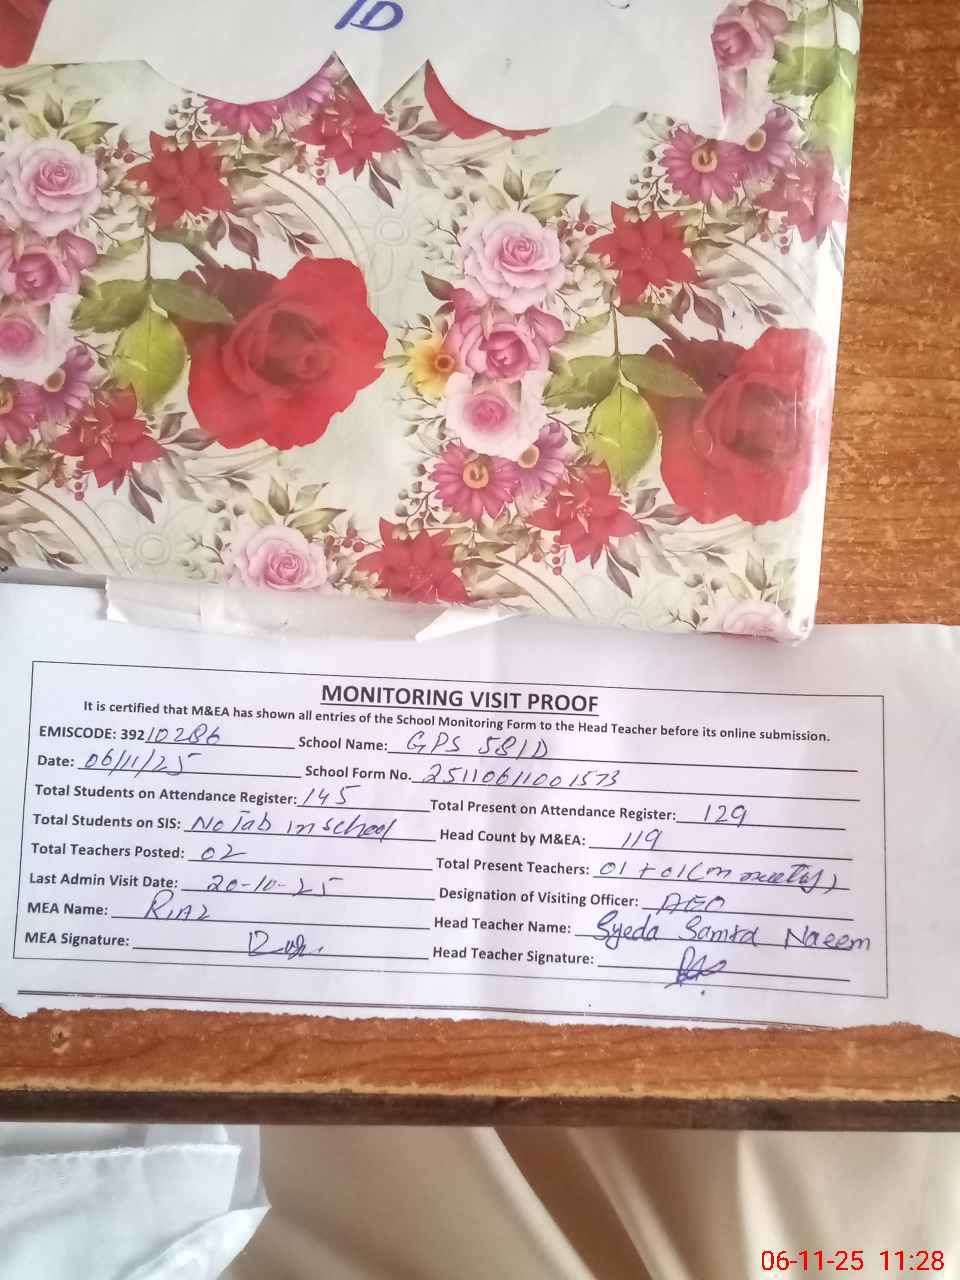 ID
MONITORING VISIT PROOF
It is certified that M&EA has shown all entries of the School Monitoring Form to the Head Teacher before its online submission.
EMISCODE: 39210286 School Name: GPS 581D
Date: 06/11/25 School Form No. 25110611001573
Total Students on Attendance Register: 145 Total Present on Attendance Register: 129
Total Students on SIS: No Tab in school Head Count by M&EA: 119
Total Teachers Posted: 02 Total Present Teachers: 01 + 01
Last Admin Visit Date: 20-10-25 Designation of Visiting Officer: AEO
MEA Name: Riaz Head Teacher Name: Syeda Naeem
MEA Signature: Head Teacher Signature:
06-11-25 11:28